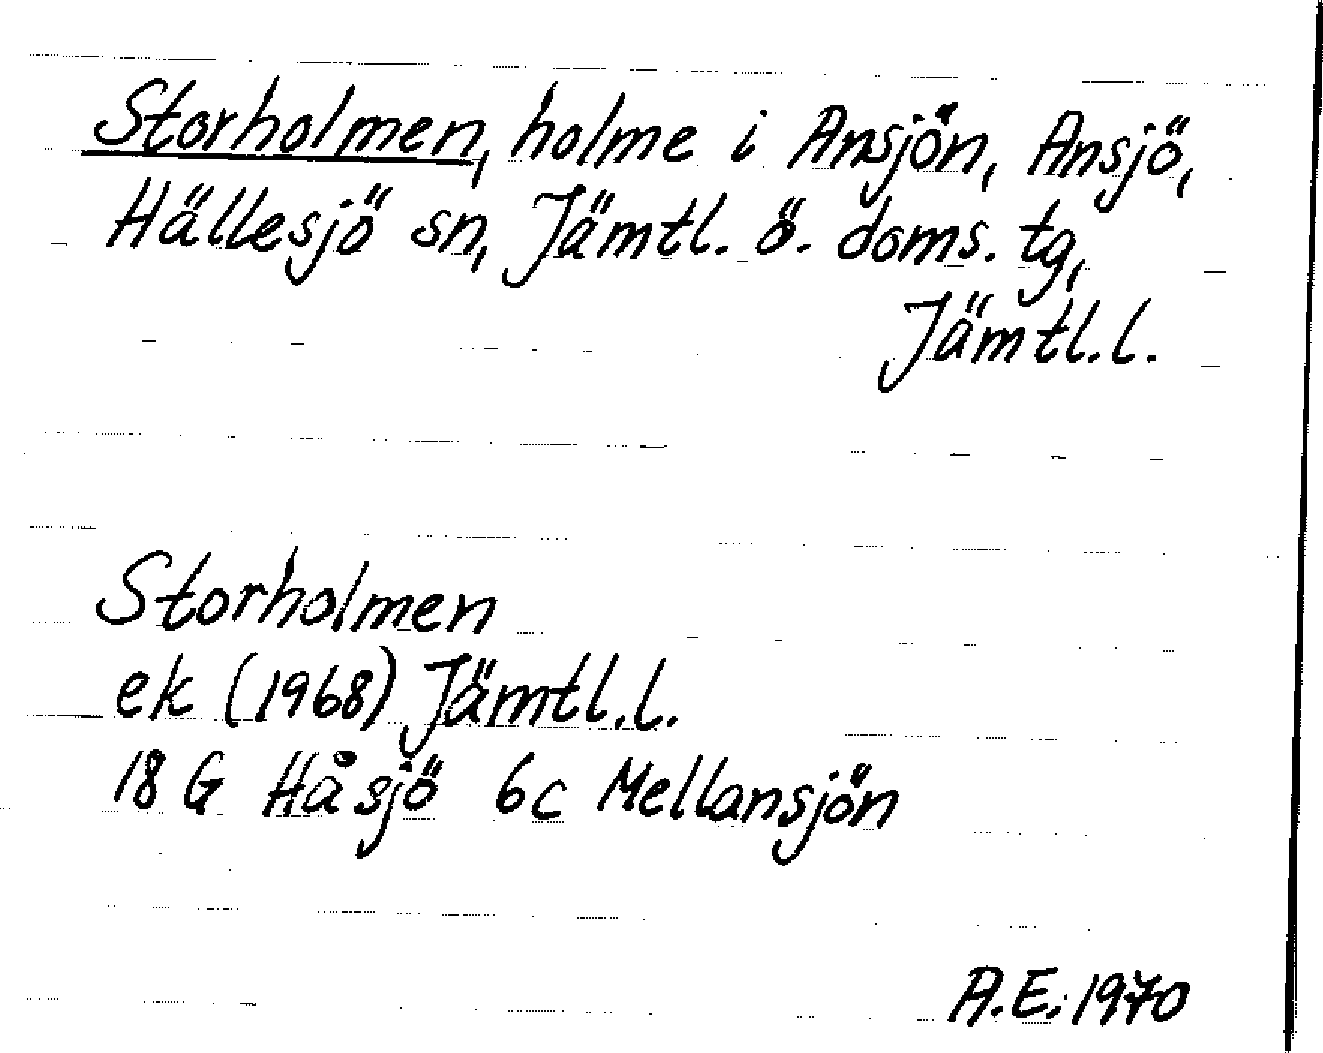 Storholmen, holme i Ansjön, Ansjö,
Hällesjö sn, Jämtl. ö. doms. tg,
Jämtl.l.
Storholmen
ek (1968) Jämtl.l.
18 G Håsjö 6c Mellansjön
A.E. 1970